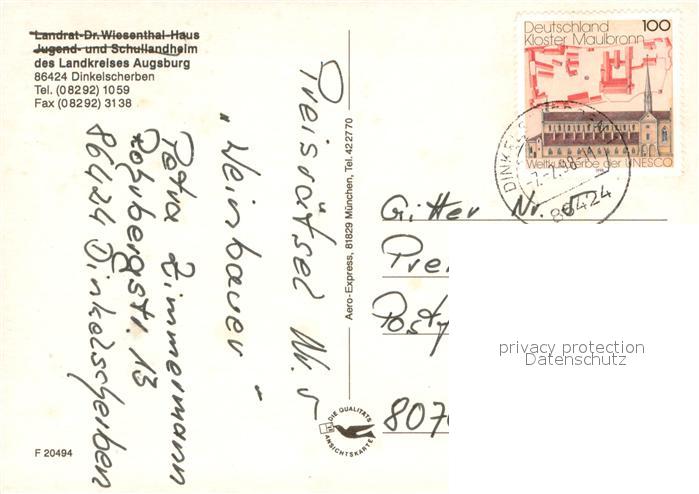 Landrat-Dr.Wiesenthal-Haus
Jugend- und Schullandheim
des Landkreises Augsburg
86424 Dinkelscherben
Tel. (08292) 1059
Fax (08292) 3138
Preisrätsel Nr. 5
"Weinbauer"
Petra Zimmermann
Rohrbergstr. 13
86424 Dinkelscherben
F 20494
Aero-Express, 81829 München, Tel. 422770
DIE QUALITÄTS
ANSICHTSKARTE
Deutschland 100
Kloster Maulbronn
Weltkulturerbe der UNESCO
-7.-7.98
86424
Gitter Nr. 5
Pre
Post
807
privacy protection
Datenschutz